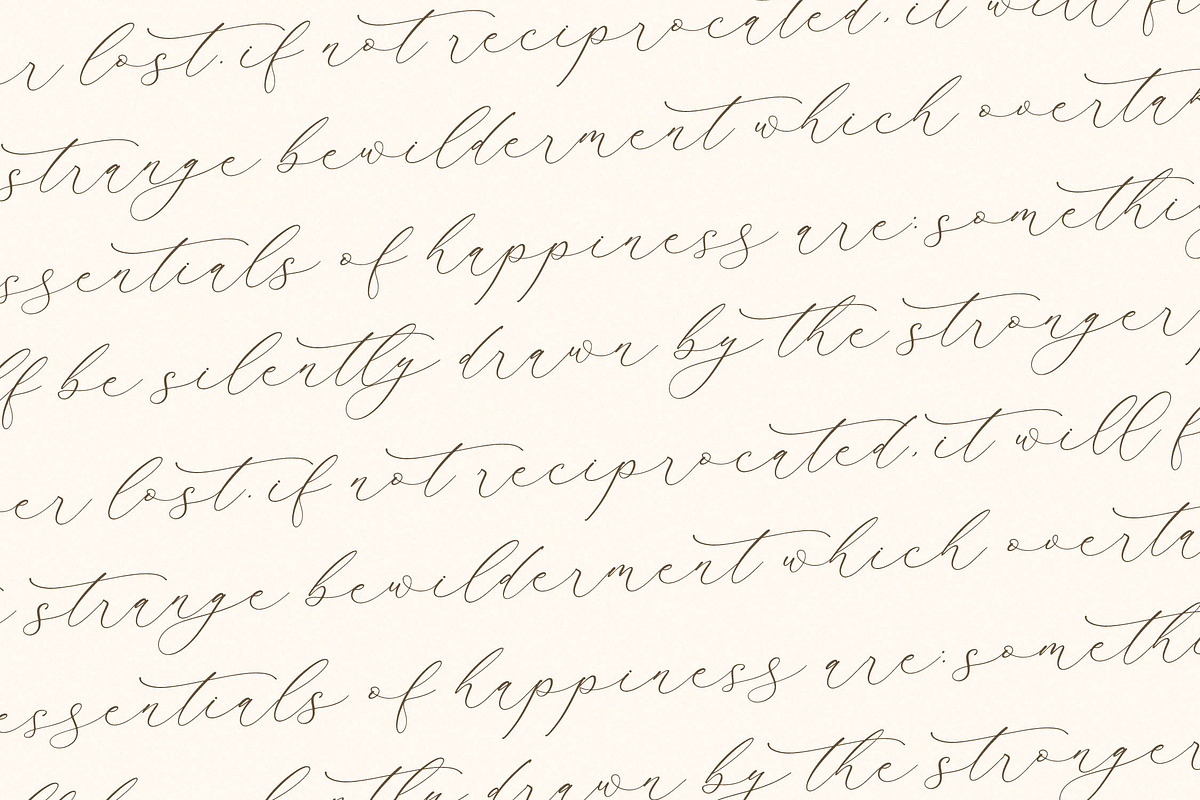 r lost. if not reciprocated, it will fl
strange bewilderment which overta
ssentials of happiness are: somethi
lf be silently drawn by the stronger p
er lost. if not reciprocated, it will f
strange bewilderment which overta
essentials of happiness are: someth
lf be silently drawn by the stronger